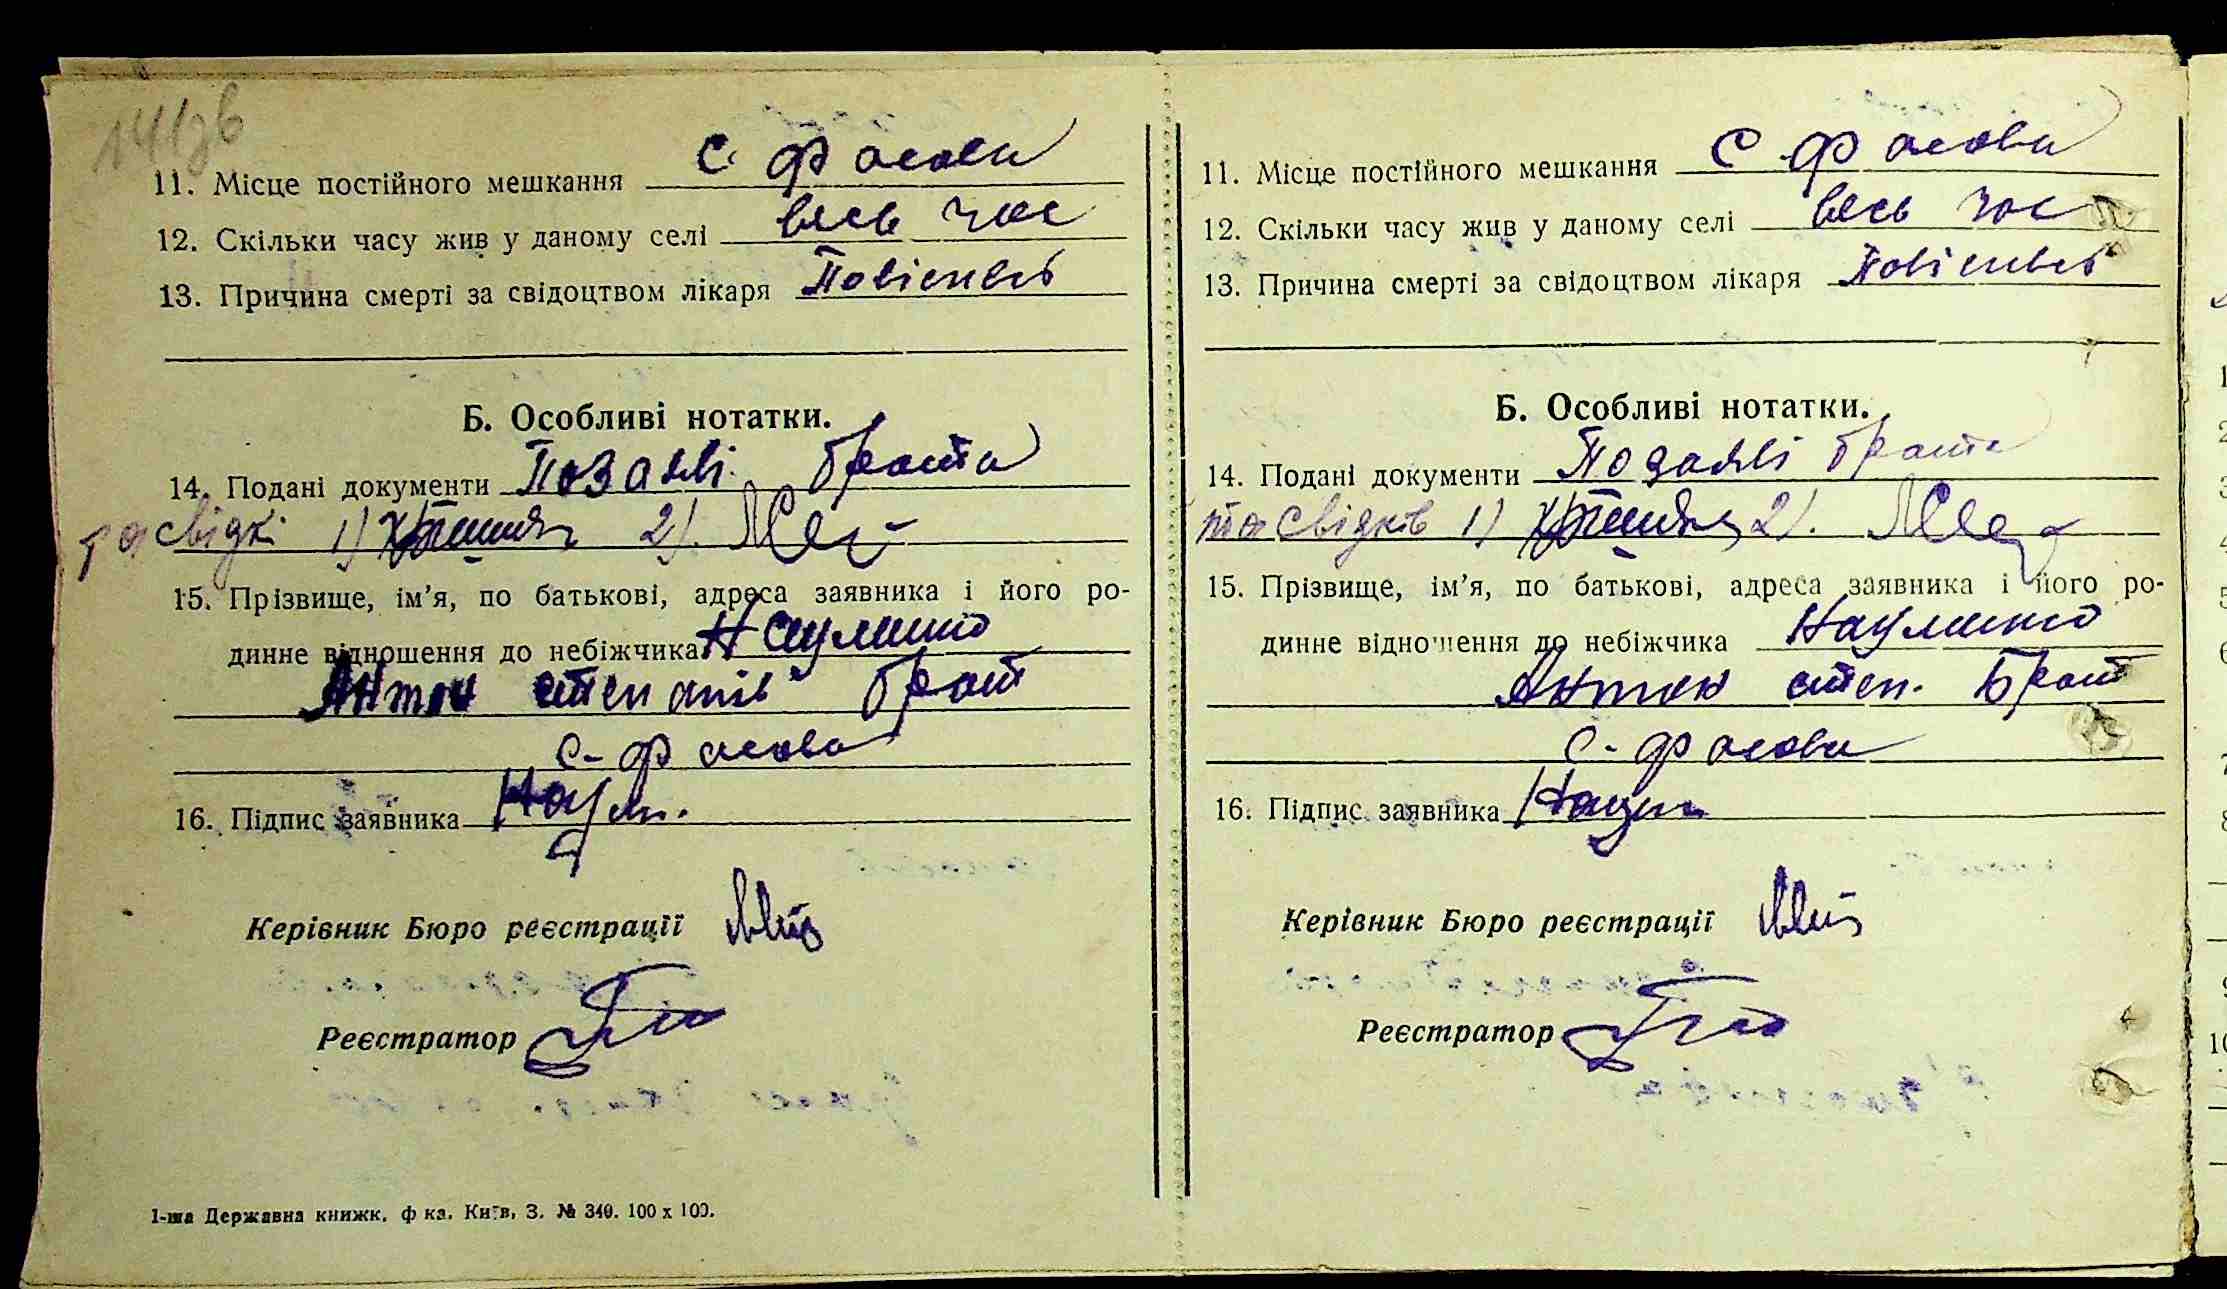 141зв
11. Місце постійного мешкання с. Фасова
12. Скільки часу жив у даному селі весь час
13. Причина смерті за свідоцтвом лікаря
Б. Особливі нотатки.
14. Подані документи По заяві брата
та свідкі 1) 2).
15. Прізвище, ім’я, по батькові, адреса заявника і його ро-
динне відношення до небіжчика Науменко
Антон степанів брат
с- Фасова
16. Підпис заявника Наум.
Керівник Бюро реєстрації
Реєстратор
1-ша Державна книжк. ф-ка. Київ, З. № 340. 100 x 100.
11. Місце постійного мешкання с. Фасова
12. Скільки часу жив у даному селі весь час
13. Причина смерті за свідоцтвом лікаря
Б. Особливі нотатки.
14. Подані документи По заяві брата
та свідків 1) 2).
15. Прізвище, ім’я, по батькові, адреса заявника і його ро-
динне відношення до небіжчика Науменко
Антон степ. Брат
с- Фасова
16. Підпис заявника Наум
Керівник Бюро реєстрації
Реєстратор